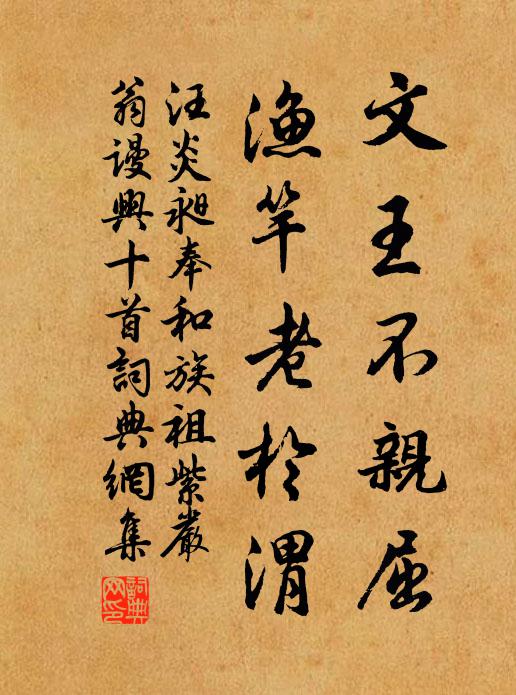 文王不親屈
漁竿老於渭
汪炎昶奉和族祖紫巖
翁謾興十首詞典網集
詞典網印